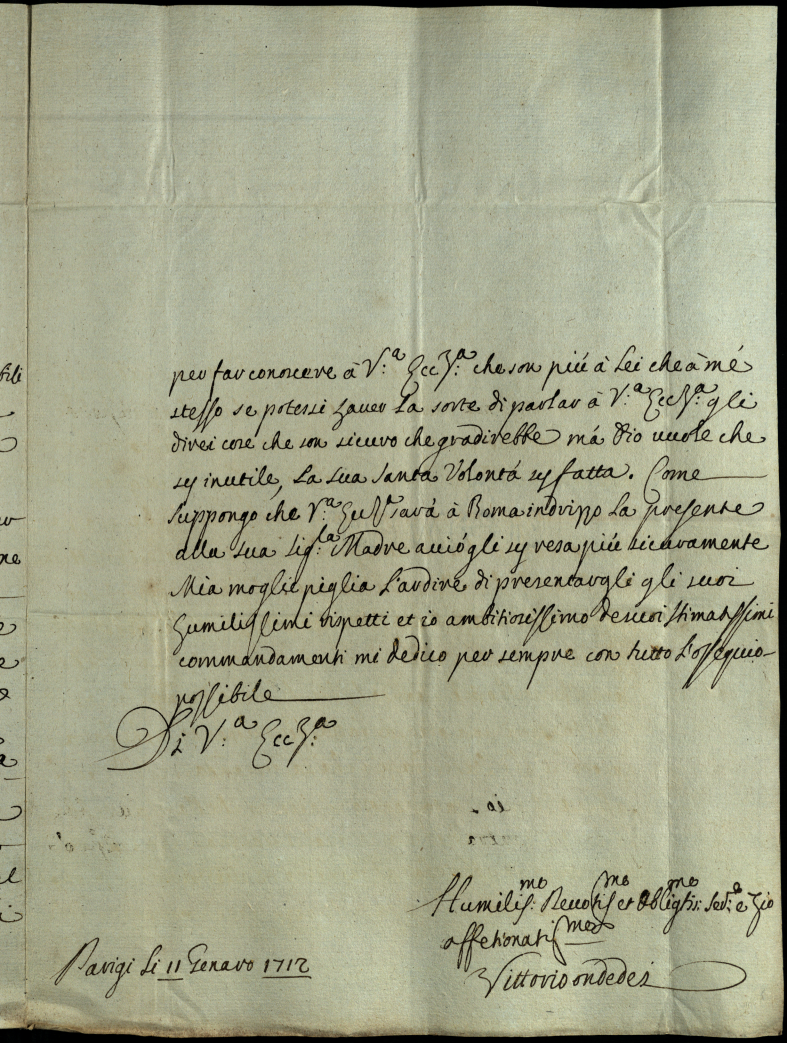 per far conoscere à V.ª Eccz.ª che son piú à Lei che à mé
stesso se potessi haver La sorte di parlar à V.ª Eccz.ª gli
direi cose che son sicuro che gradirebbe má Dio vuole che
sij inutile, La sua santa Volontá sij fatta. Come
suppongo che V.ª sará à Roma indrizzo La presente
alla sua Sig.la Madre acciógli sij resa piú sicuramente
Mia moglie piglia L'ardire di presentargli gli suoi
humilissimi rispetti et io ambitiosissimo de suoi stimatissimi
commandamenti mi dedico per sempre con tutto L'ossequio
possibile
Di V.ª Eccz.ª
Humilis.mo Devotis.mo et Obligtis.mo Ser.e e Zio
affetionatis.mo
Vittorio ondedei
Parigi Li 11 Genaro 1712